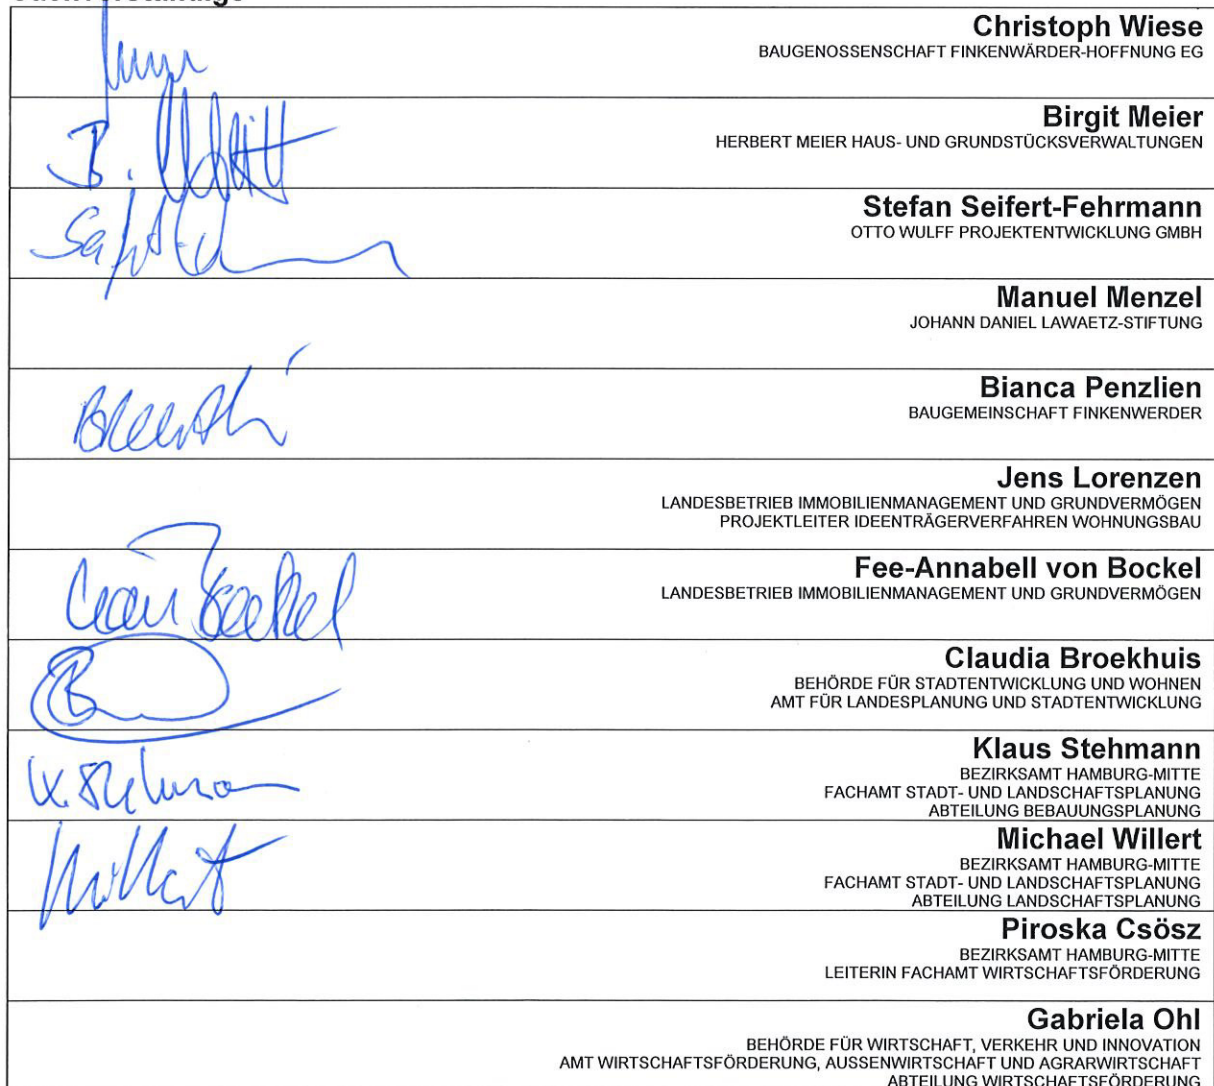 Christoph Wiese
BAUGENOSSENSCHAFT FINKENWÄRDER-HOFFNUNG EG
Birgit Meier
HERBERT MEIER HAUS- UND GRUNDSTÜCKSVERWALTUNGEN
B.
Stefan Seifert-Fehrmann
OTTO WULFF PROJEKTENTWICKLUNG GMBH
Manuel Menzel
JOHANN DANIEL LAWAETZ-STIFTUNG
Bianca Penzlien
BAUGEMEINSCHAFT FINKENWERDER
Jens Lorenzen
LANDESBETRIEB IMMOBILIENMANAGEMENT UND GRUNDVERMÖGEN
PROJEKTLEITER IDEENTRÄGERVERFAHREN WOHNUNGSBAU
Fee-Annabell von Bockel
LANDESBETRIEB IMMOBILIENMANAGEMENT UND GRUNDVERMÖGEN
Claudia Broekhuis
BEHÖRDE FÜR STADTENTWICKLUNG UND WOHNEN
AMT FÜR LANDESPLANUNG UND STADTENTWICKLUNG
Klaus Stehmann
BEZIRKSAMT HAMBURG-MITTE
FACHAMT STADT- UND LANDSCHAFTSPLANUNG
ABTEILUNG BEBAUUNGSPLANUNG
K. Stehmann
Michael Willert
BEZIRKSAMT HAMBURG-MITTE
FACHAMT STADT- UND LANDSCHAFTSPLANUNG
ABTEILUNG LANDSCHAFTSPLANUNG
Willert
Piroska Csösz
BEZIRKSAMT HAMBURG-MITTE
LEITERIN FACHAMT WIRTSCHAFTSFÖRDERUNG
Gabriela Ohl
BEHÖRDE FÜR WIRTSCHAFT, VERKEHR UND INNOVATION
AMT WIRTSCHAFTSFÖRDERUNG, AUSSENWIRTSCHAFT UND AGRARWIRTSCHAFT
ABTEILUNG WIRTSCHAFTSFÖRDERUNG